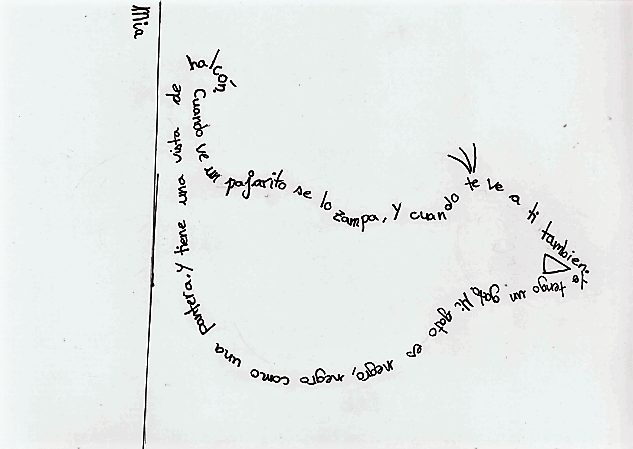 Mia
Yo tengo un gato. Mi gato es negro, negro como una pantera. Y tiene una vista de halcón. Cuando ve un pajarito se lo zampa, y cuando te ve a ti tambien.